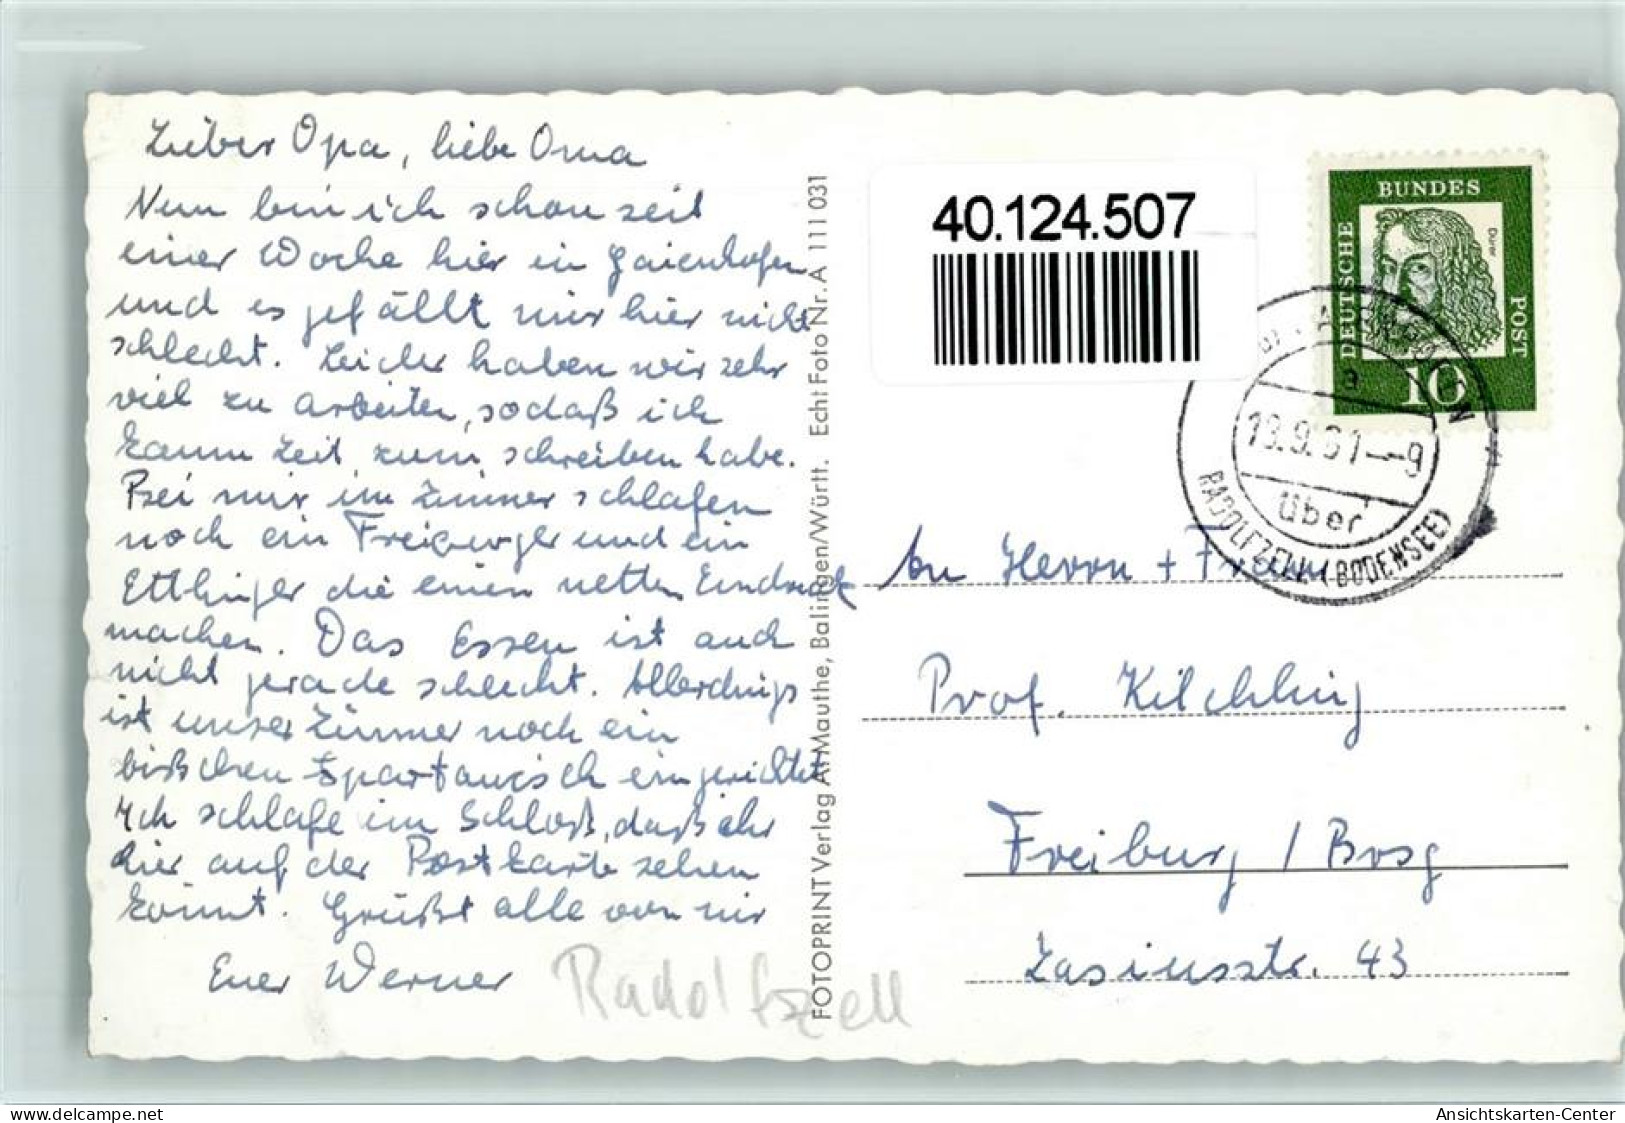 Lieber Opa, liebe Oma
Nun bin ich schon seit
einer Woche hier in Gaienhofen
und es gefällt mir hier nicht
schlecht. Leider haben wir sehr
viel zu arbeiten, sodaß ich
kaum Zeit zum schreiben habe.
Bei mir im Zimmer schlafen
noch ein Freiburger und ein
Ettlinger die einen netten Eindruck
machen. Das Essen ist auch
nicht gerade schlecht. Allerdings
ist unser Zimmer noch ein
bißchen spartanisch eingerichtet
Ich schlafe im Schloß, daß ihr
hier auf der Postkarte sehen
könnt. Grüßt alle von mir
Euer Werner
Radolfszell
FOTOPRINT Verlag A. Mauthe, Balingen/Württ. Echt Foto Nr. A 111 031
40.124.507
DEUTSCHE BUNDES POST
Dürer
10
a
19.9.61--9
über
RADOLFZELL (BODENSEE)
An Herrn + Frau
Prof. Kilchling
Freiburg / Brsg
Zasiusstr. 43
oldthing.de
Ansichtskarten-Center